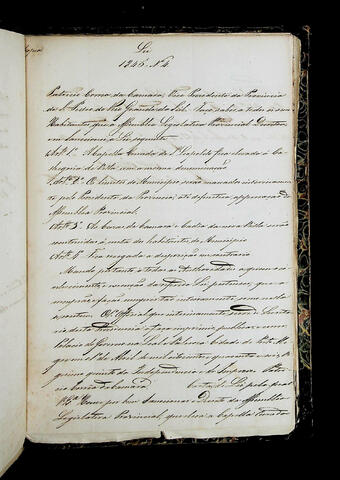 Lei
1846. N.º 4
Patricio Correa da Camara, Vice Presidente da Provincia
de S. Pedro do Rio Grande do Sul. Faço saber a todos os seus
Habitantes, que a Assemblea Legislativa Provincial Decretou
e eu Sanccionei a Lei seguinte
Art.º 1.º A Capella Curada de S. Leopoldo fica elevada á Ca-
thegoria de Villa, com a mesma denominação
Art.º 2.º Os limites do Municipio serão marcados interinamen-
te pelo Presidente da Provincia, até definitiva approvação da
Assemblea Provincial.
Art.º 3.º As Cazas da Camara e Cadêa da nova Villa serão
construidas á custa dos habitantes do Municipio
Art.º 4.º Fica revogada a disposição em contrario
Mando portanto a todas as Authoridades a quem o co-
nhecimento e execução da referida Lei pertencer, que a
cumprão e fação cumprir tão inteiramente como nella
se contem. O Official que interinamente serve de Secreta-
rio desta Provincia a faça imprimir publicar e correr
Palacio do Governo na Leal e Valorosa Cidade de Porto A-
gre no 1.º de Abril de mil oitocentos e quarenta e seis,
quinto da Independencia e do Imperio Patri-
cio Correa da Camara Carta de Lei pela qual
V. Ex.ª Houve por bem Sanccionar o Decreto da Assemblea
Legislativa Provincial, que eleva a Capella Curada